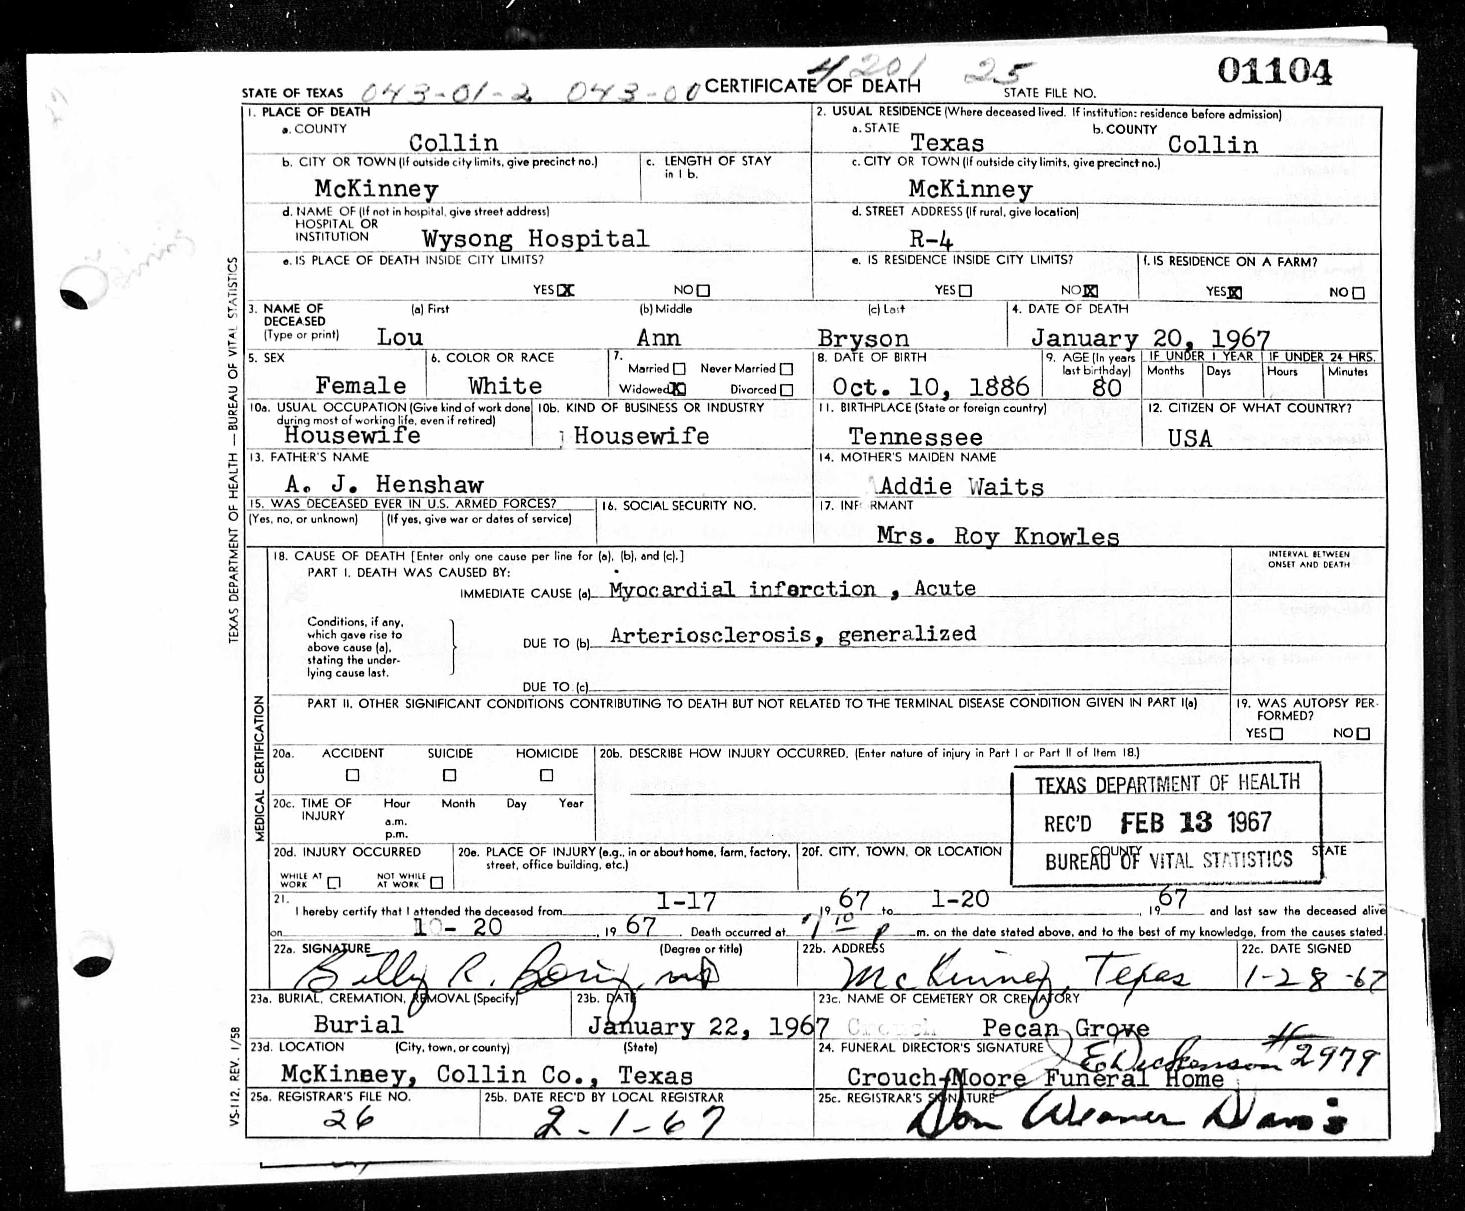 STATE OF TEXAS 043-01-2 043-00 CERTIFICATE OF DEATH 4201 25 STATE FILE NO. 01104
1. PLACE OF DEATH
a. COUNTY
Collin
2. USUAL RESIDENCE (Where deceased lived. If institution: residence before admission)
a. STATE b. COUNTY
Texas Collin
b. CITY OR TOWN (If outside city limits, give precinct no.)
McKinney
c. LENGTH OF STAY
in 1 b.
c. CITY OR TOWN (If outside city limits, give precinct no.)
McKinney
d. NAME OF (If not in hospital, give street address)
HOSPITAL OR
INSTITUTION Wysong Hospital
d. STREET ADDRESS (If rural, give location)
R-4
e. IS PLACE OF DEATH INSIDE CITY LIMITS?
YES☒ NO☐
e. IS RESIDENCE INSIDE CITY LIMITS?
YES☐ NO☒
f. IS RESIDENCE ON A FARM?
YES☒ NO☐
3. NAME OF
DECEASED
(Type or print)
(a) First (b) Middle (c) Last
Lou Ann Bryson
4. DATE OF DEATH
January 20, 1967
5. SEX
Female
6. COLOR OR RACE
White
7.
Married ☐ Never Married ☐
Widowed☒ Divorced ☐
8. DATE OF BIRTH
Oct. 10, 1886
9. AGE (In years
last birthday)
80
IF UNDER 1 YEAR
Months Days
IF UNDER 24 HRS.
Hours Minutes
10a. USUAL OCCUPATION (Give kind of work done
during most of working life, even if retired)
Housewife
10b. KIND OF BUSINESS OR INDUSTRY
Housewife
11. BIRTHPLACE (State or foreign country)
Tennessee
12. CITIZEN OF WHAT COUNTRY?
USA
13. FATHER'S NAME
A. J. Henshaw
14. MOTHER'S MAIDEN NAME
Addie Waits
15. WAS DECEASED EVER IN U.S. ARMED FORCES?
(Yes, no, or unknown) (If yes, give war or dates of service)
16. SOCIAL SECURITY NO.
17. INF RMANT
Mrs. Roy Knowles
18. CAUSE OF DEATH [Enter only one cause per line for (a), (b), and (c).]
INTERVAL BETWEEN
ONSET AND DEATH
PART I. DEATH WAS CAUSED BY:
IMMEDIATE CAUSE (a) Myocardial infarction , Acute
Conditions, if any,
which gave rise to
above cause (a),
stating the under-
lying cause last.
DUE TO (b) Arteriosclerosis, generalized
DUE TO (c)
PART II. OTHER SIGNIFICANT CONDITIONS CONTRIBUTING TO DEATH BUT NOT RELATED TO THE TERMINAL DISEASE CONDITION GIVEN IN PART I(a)
19. WAS AUTOPSY PER-
FORMED?
YES☐ NO☐
20a. ACCIDENT SUICIDE HOMICIDE
☐ ☐ ☐
20b. DESCRIBE HOW INJURY OCCURRED. (Enter nature of injury in Part I or Part II of Item 18.)
20c. TIME OF
INJURY
Hour Month Day Year
a.m.
p.m.
TEXAS DEPARTMENT OF HEALTH
REC'D FEB 13 1967
BUREAU OF VITAL STATISTICS
20d. INJURY OCCURRED
WHILE AT
WORK ☐
NOT WHILE
AT WORK ☐
20e. PLACE OF INJURY (e.g., in or about home, farm, factory,
street, office building, etc.)
20f. CITY, TOWN, OR LOCATION COUNTY STATE
21.
I hereby certify that I attended the deceased from 1-17, 19 67 to 1-20, 19 67 and last saw the deceased alive
on 1 - 20, 19 67. Death occurred at 1 10 P m. on the date stated above, and to the best of my knowledge, from the causes stated.
22a. SIGNATURE (Degree or title)
Billy R. MD
22b. ADDRESS
McKinney, Texas
22c. DATE SIGNED
1-28-67
23a. BURIAL, CREMATION, REMOVAL (Specify)
Burial
23b. DATE
January 22, 1967
23c. NAME OF CEMETERY OR CREMATORY
Pecan Grove
23d. LOCATION (City, town, or county) (State)
McKinney, Collin Co., Texas
24. FUNERAL DIRECTOR'S SIGNATURE
E Dickenson #2979
Crouch-Moore Funeral Home
25a. REGISTRAR'S FILE NO.
26
25b. DATE REC'D BY LOCAL REGISTRAR
2-1-67
25c. REGISTRAR'S SIGNATURE
Don Weaver Davis
TEXAS DEPARTMENT OF HEALTH — BUREAU OF VITAL STATISTICS
MEDICAL CERTIFICATION
VS-112, REV. 1/58